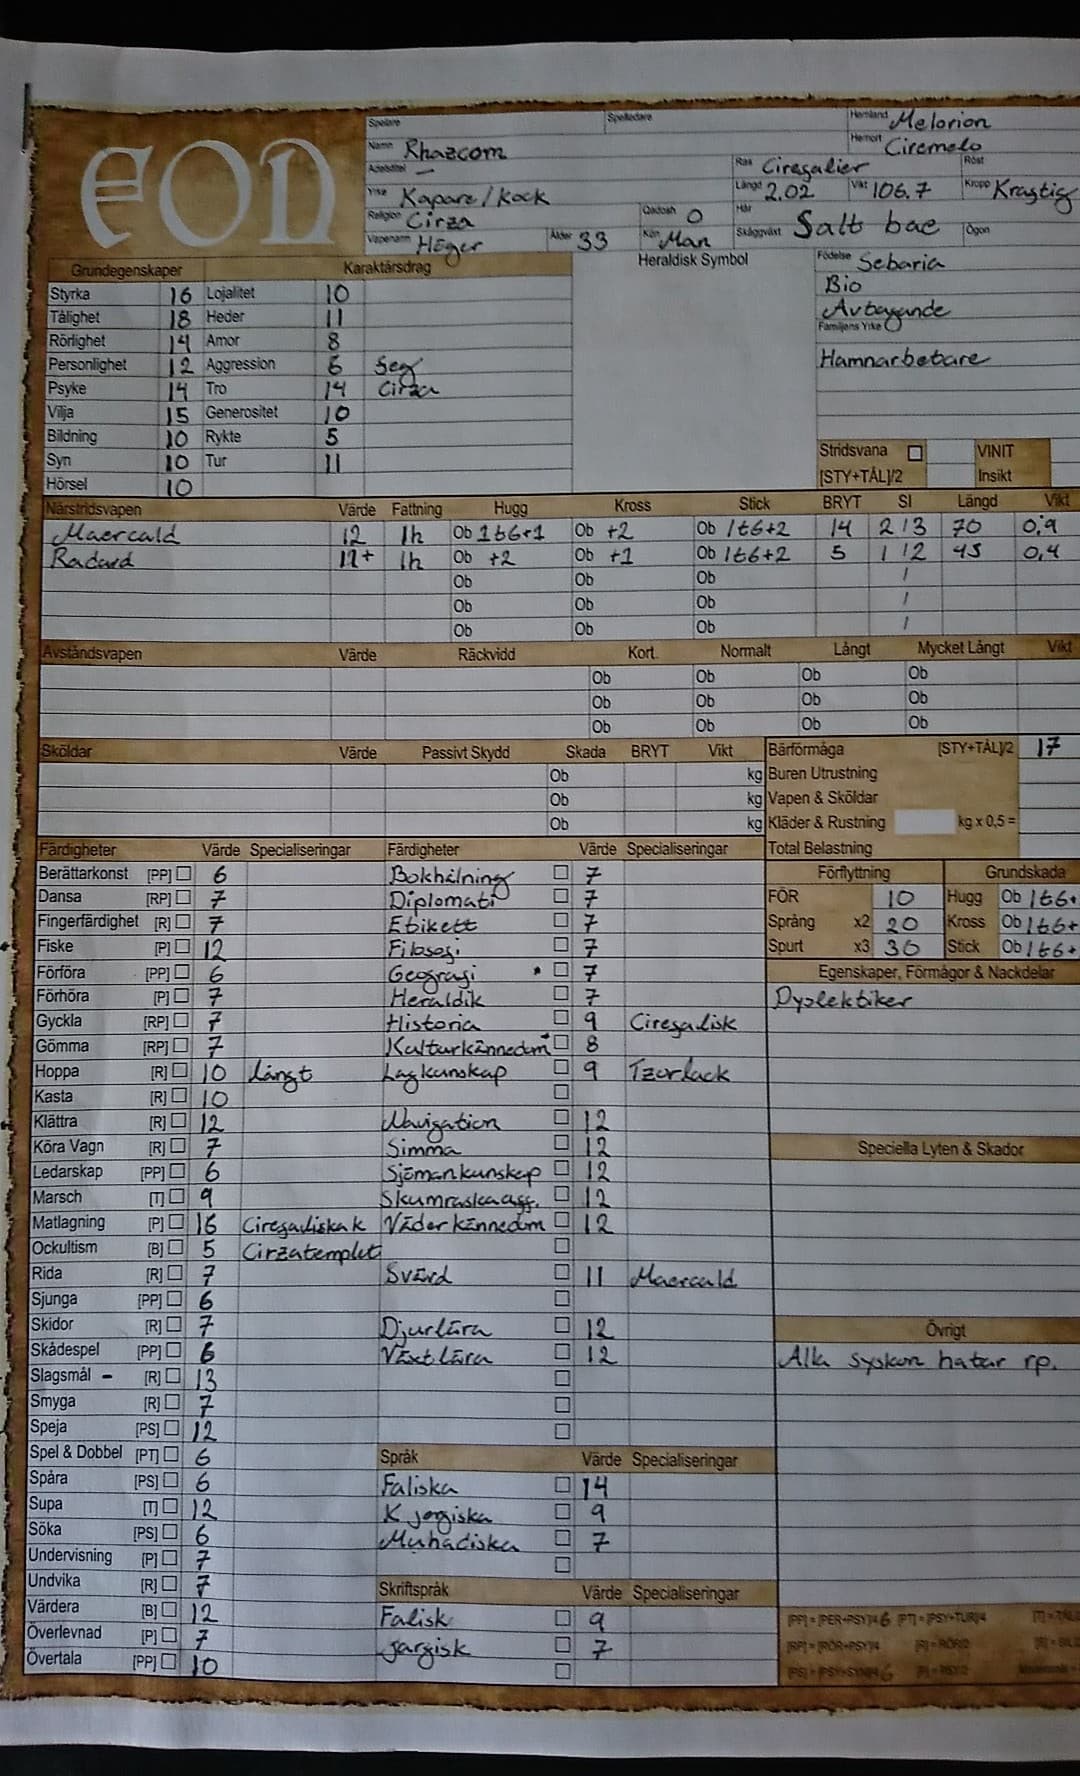 EON
Spelare
Spelledare
Hemland Melorion
Namn Rhazcom
Hemort Ciremelo
Adelstitel –
Ras Ciregalier
Röst
Yrke Kapare/Kock
Längd 2.02 Vikt 106.7 Kropp Kraftig
Religion Cirza
Qadosh 0
Hår
Skäggväxt Salt bae
Ögon
Vapenarm Höger
Ålder 33
Kön Man
Grundegenskaper Karaktärsdrag
Heraldisk Symbol
Födelse Sebaria
Bio
Avbegande
Familjens Yrke
Hamnarbetare
Styrka 16 Lojalitet 10
Tålighet 18 Heder 11
Rörlighet 14 Amor 8
Personlighet 12 Aggression 6 Seg
Psyke 14 Tro 14 Cirza
Vilja 15 Generositet 10
Bildning 10 Rykte 5
Syn 10 Tur 11
Hörsel 10
Stridsvana VINIT
[STY+TÅL]/2 Insikt
Närstridsvapen Värde Fattning Hugg Kross Stick BRYT SI Längd Vikt
Maercald 12 1h Ob 1t6+1 Ob +2 Ob 1t6+2 14 2/3 70 0.9
Radard 12+ 1h Ob +2 Ob +1 Ob 1t6+2 5 1/2 45 0,4
Ob Ob Ob /
Ob Ob Ob /
Ob Ob Ob /
Avståndsvapen Värde Räckvidd Kort Normalt Långt Mycket Långt Vikt
Ob Ob Ob Ob
Ob Ob Ob Ob
Ob Ob Ob Ob
Sköldar Värde Passivt Skydd Skada BRYT Vikt
Ob kg
Ob kg
Ob kg
Bärförmåga [STY+TÅL]/2 17
Buren Utrustning
Vapen & Sköldar
Kläder & Rustning kg x 0,5 =
Total Belastning
Färdigheter Värde Specialiseringar Färdigheter Värde Specialiseringar
Berättarkonst [PP] 6 Bokhålning 7
Dansa [RP] 7 Diplomati 7
Fingerfärdighet [R] 7 Etikett 7
Fiske [P] 12 Filosofi 7
Förföra [PP] 6 Geografi 7
Förhöra [P] 7 Heraldik 7
Gyckla [RP] 7 Historia 9 Ciregalisk
Gömma [RP] 7 Kulturkännedom 8
Hoppa [R] 10 Långt Lagkunskap 9 Tzorlack
Kasta [R] 10
Klättra [R] 12 Navigation 12
Köra Vagn [R] 7 Simma 12
Ledarskap [PP] 6 Sjömankunskap 12
Marsch [T] 9 12
Matlagning [P] 16 Ciregaliska k Väderkännedom 12
Ockultism [B] 5 Cirzatemplet
Rida [R] 7 Svärd 11 Maercald
Sjunga [PP] 6
Skidor [R] 7 Djurlära 12
Skådespel [PP] 6 Växtlära 12
Slagsmål – [R] 13
Smyga [R] 7
Speja [PS] 12
Spel & Dobbel [PT] 6
Spåra [PS] 6
Supa [T] 12
Söka [PS] 6
Undervisning [P] 7
Undvika [R] 7
Värdera [B] 12
Överlevnad [P] 7
Övertala [PP] 10
Språk Värde Specialiseringar
Faliska 14
Kjorgiska 9
Muhadiska 7
Skriftspråk Värde Specialiseringar
Falisk 9
Jargisk 7
Förflyttning Grundskada
FÖR 10 Hugg Ob 1t6+
Språng x2 20 Kross Ob 1t6+
Spurt x3 30 Stick Ob 1t6+
Egenskaper, Förmågor & Nackdelar
Dyslektiker
Speciella Lyten & Skador
Övrigt
Alla syskon hatar rp.
[PP] = [PER+PSY]/4 6 [PT] = [PSY+TUR]/4
[RP] = [RÖR+PSY]/4 [R] = RÖR/2
[PS] = [PSY+SYN]/4 6 [P] = PSY/2